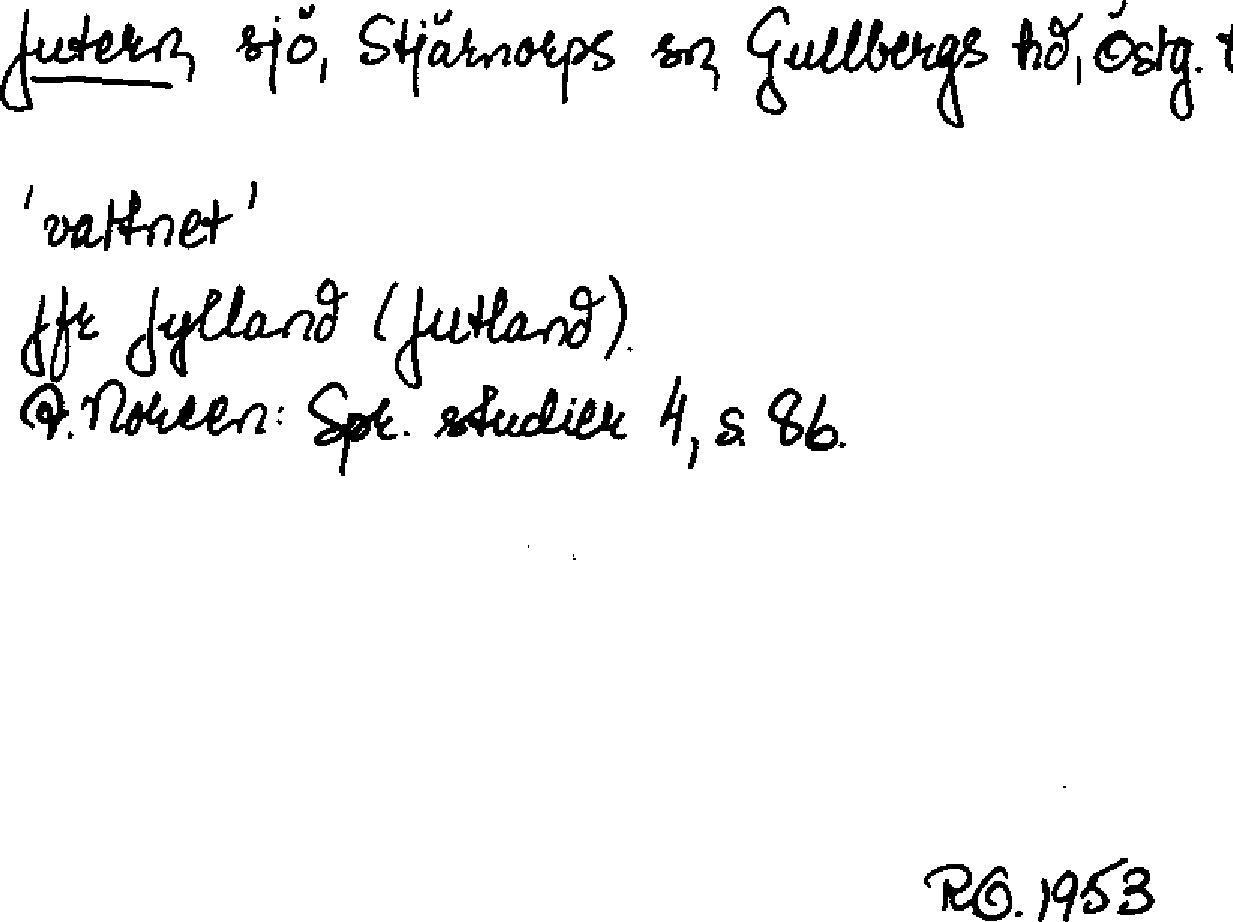 Jutern, sjö, Stjärnorps sn, Gullbergs hd, Östg.
'vattnet'
Jfr Jylland (Jutland).
A. Noreen: Spr. studier 4, s. 86.
RO. 1953